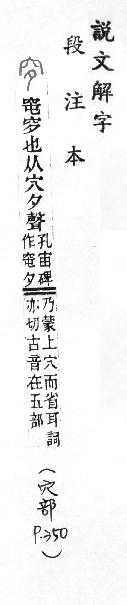 說文解字
段注本
穸 窀穸也从穴夕聲
孔宙碑
作窀夕
乃蒙上穴而省耳詞
亦切古音在五部
(穴部
P.350)